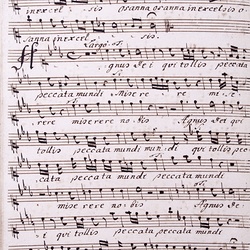 inexcel sis osanna osanna inexcelsis o
sanna inexcel sis.
Largo
Agnus Dei qui tollis peccata
peccata mundi misere re mi se
rere miserere no bis Agnus De i qui
tollis peccata mundi mundi qui tollis pec
cata peccata mundi peccata mundi
miserere no bis Agnus De
i qui tollis peccata mundi